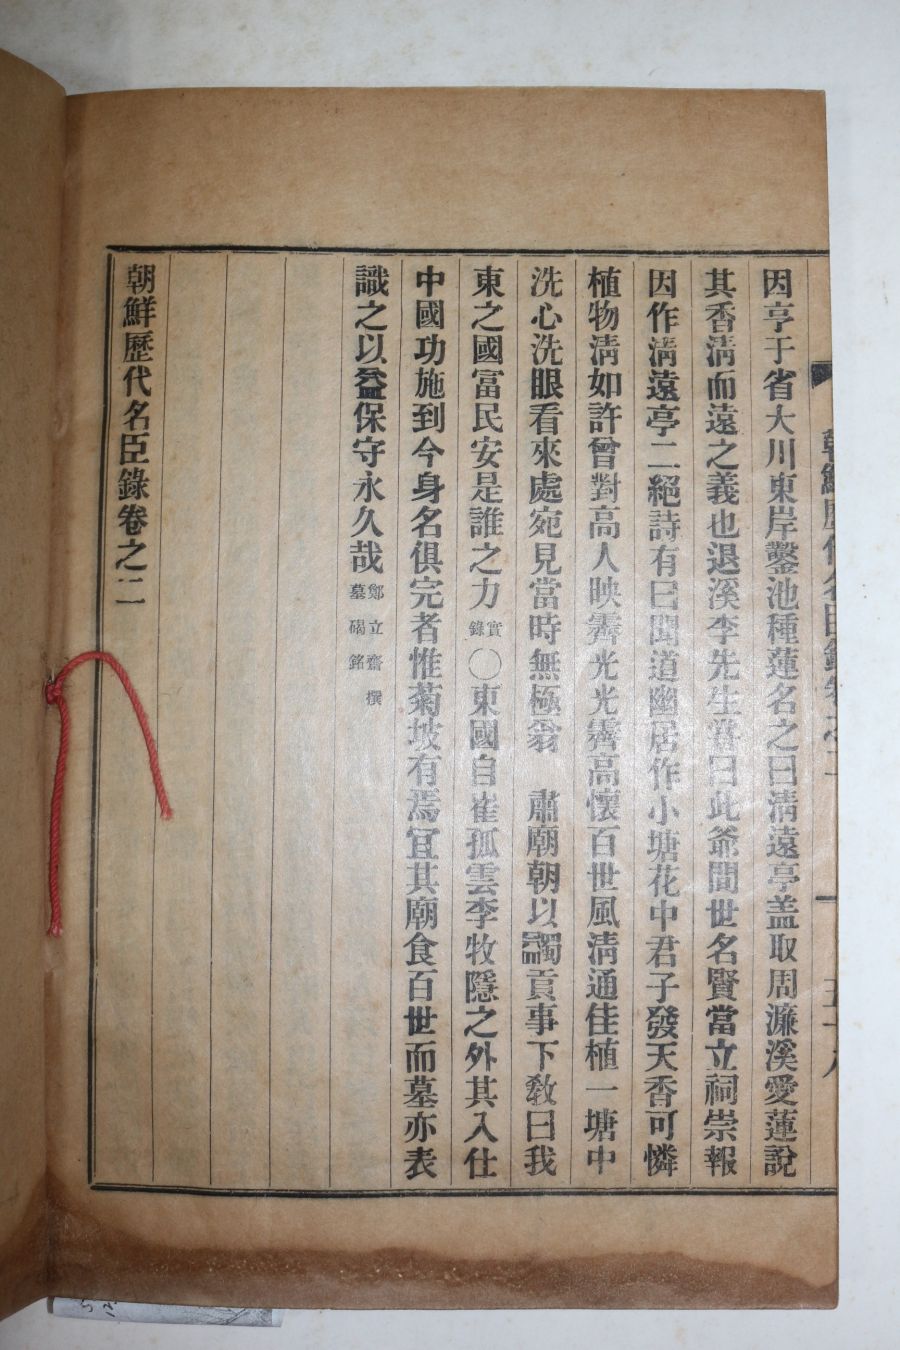 因亨于省大川東岸鑿池種蓮名之曰淸遠亭盖取周濂溪愛蓮說
其香淸而遠之義也退溪李先生嘗曰此爺間世名賢當立祠崇報
因作淸遠亭二絕詩有曰聞道幽居作小塘花中君子發天香可憐
植物淸如許曾對高人映霽光光霽高懷百世風淸通佳植一塘中
洗心洗眼看來處宛見當時無極翁　肅廟朝以蠲貢事下敎曰我
東之國富民安是誰之力實錄〇東國自崔孤雲李牧隱之外其入仕
中國功施到今身名俱完者惟菊坡有焉宜其廟食百世而墓亦表
識之以益保守永久哉鄭立齋撰墓碣銘
朝鮮歷代名臣錄卷之二